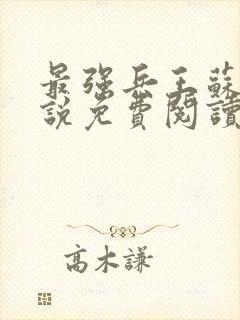 最强兵王蘇
說免費閱讀
高木謙